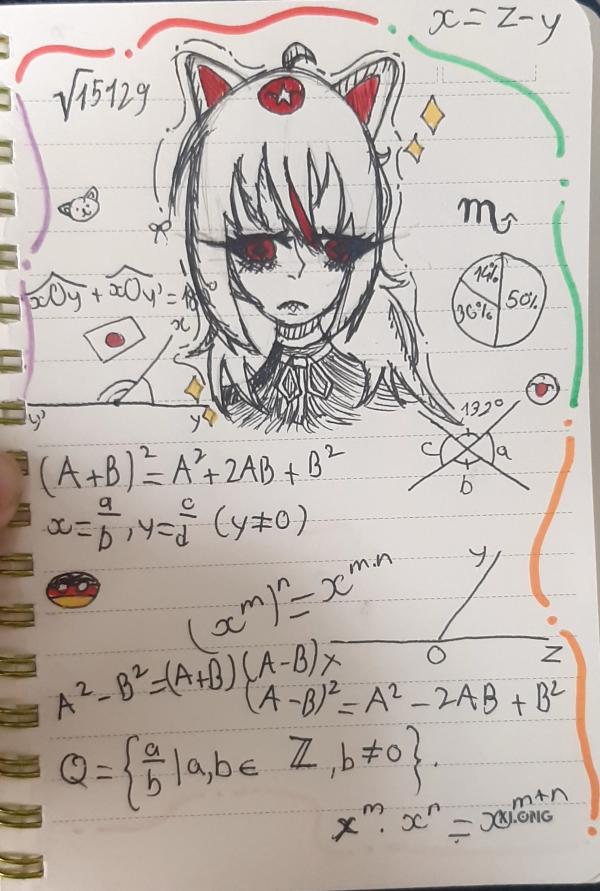 x = z - y
√15129
m
14%
50%
36%
xOy + xOy' = 18
x
y'
y
132°
c
a
b
(A + B)² = A² + 2AB + B²
x = a/b, y = c/d (y ≠ 0)
(xᵐ)ⁿ = xᵐ·ⁿ
y
x
O
z
A² - B² = (A + B)(A - B)
(A - B)² = A² - 2AB + B²
Q = {a/b | a, b ∈ ℤ, b ≠ 0}.
xᵐ · xⁿ = xᵐ⁺ⁿ